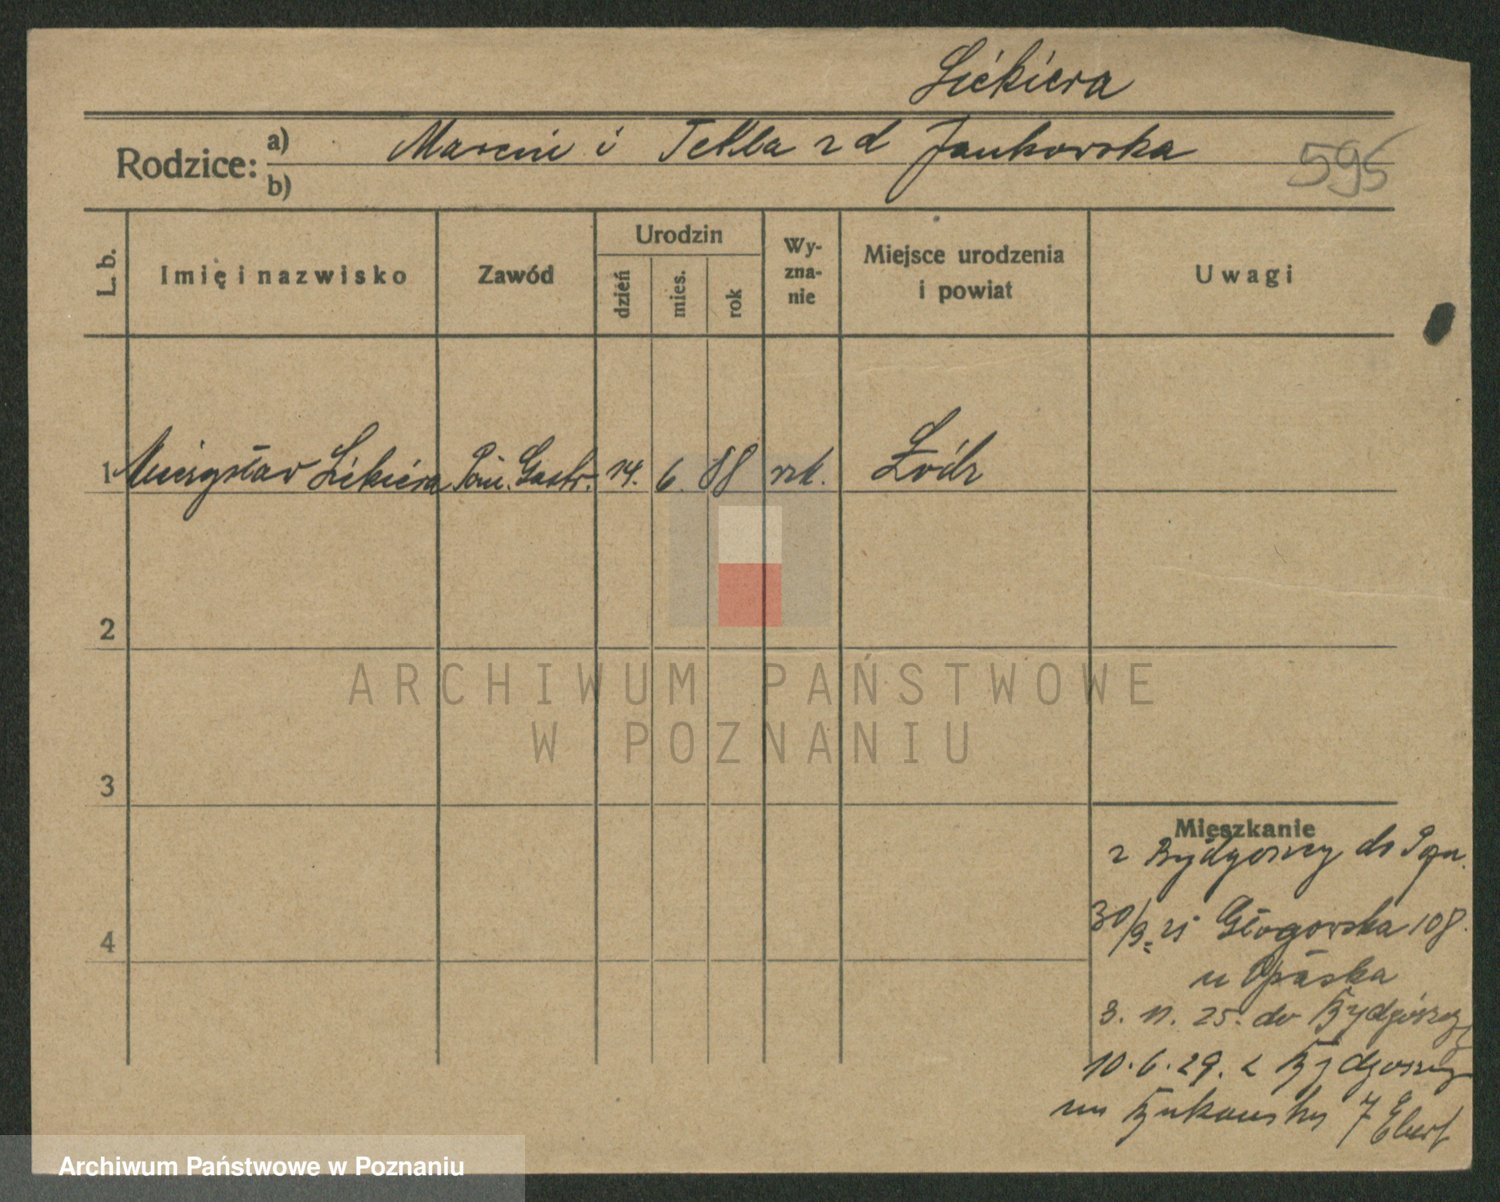 Siékiéra
Rodzice: a) Marcin i Tekla z d Jankowska
b)
595
L. b.
Imię i nazwisko
Zawód
Urodzin
dzień
mies.
rok
Wy-
zna-
nie
Miejsce urodzenia
i powiat
Uwagi
1 Mieczysław Siékiéra Pom. Gastr. 14. 6. 88 rzk. Łódz
2
3
4
Mieszkanie
z Bydgoszczy do Pozn.
30/9. 25 Głogowska 108.
u
3. 11. 25. do Bydgoszczy
10. 6. 29. z Bydgoszczy
7 Ebert
ARCHIWUM PAŃSTWOWE
W POZNANIU
Archiwum Państwowe w Poznaniu